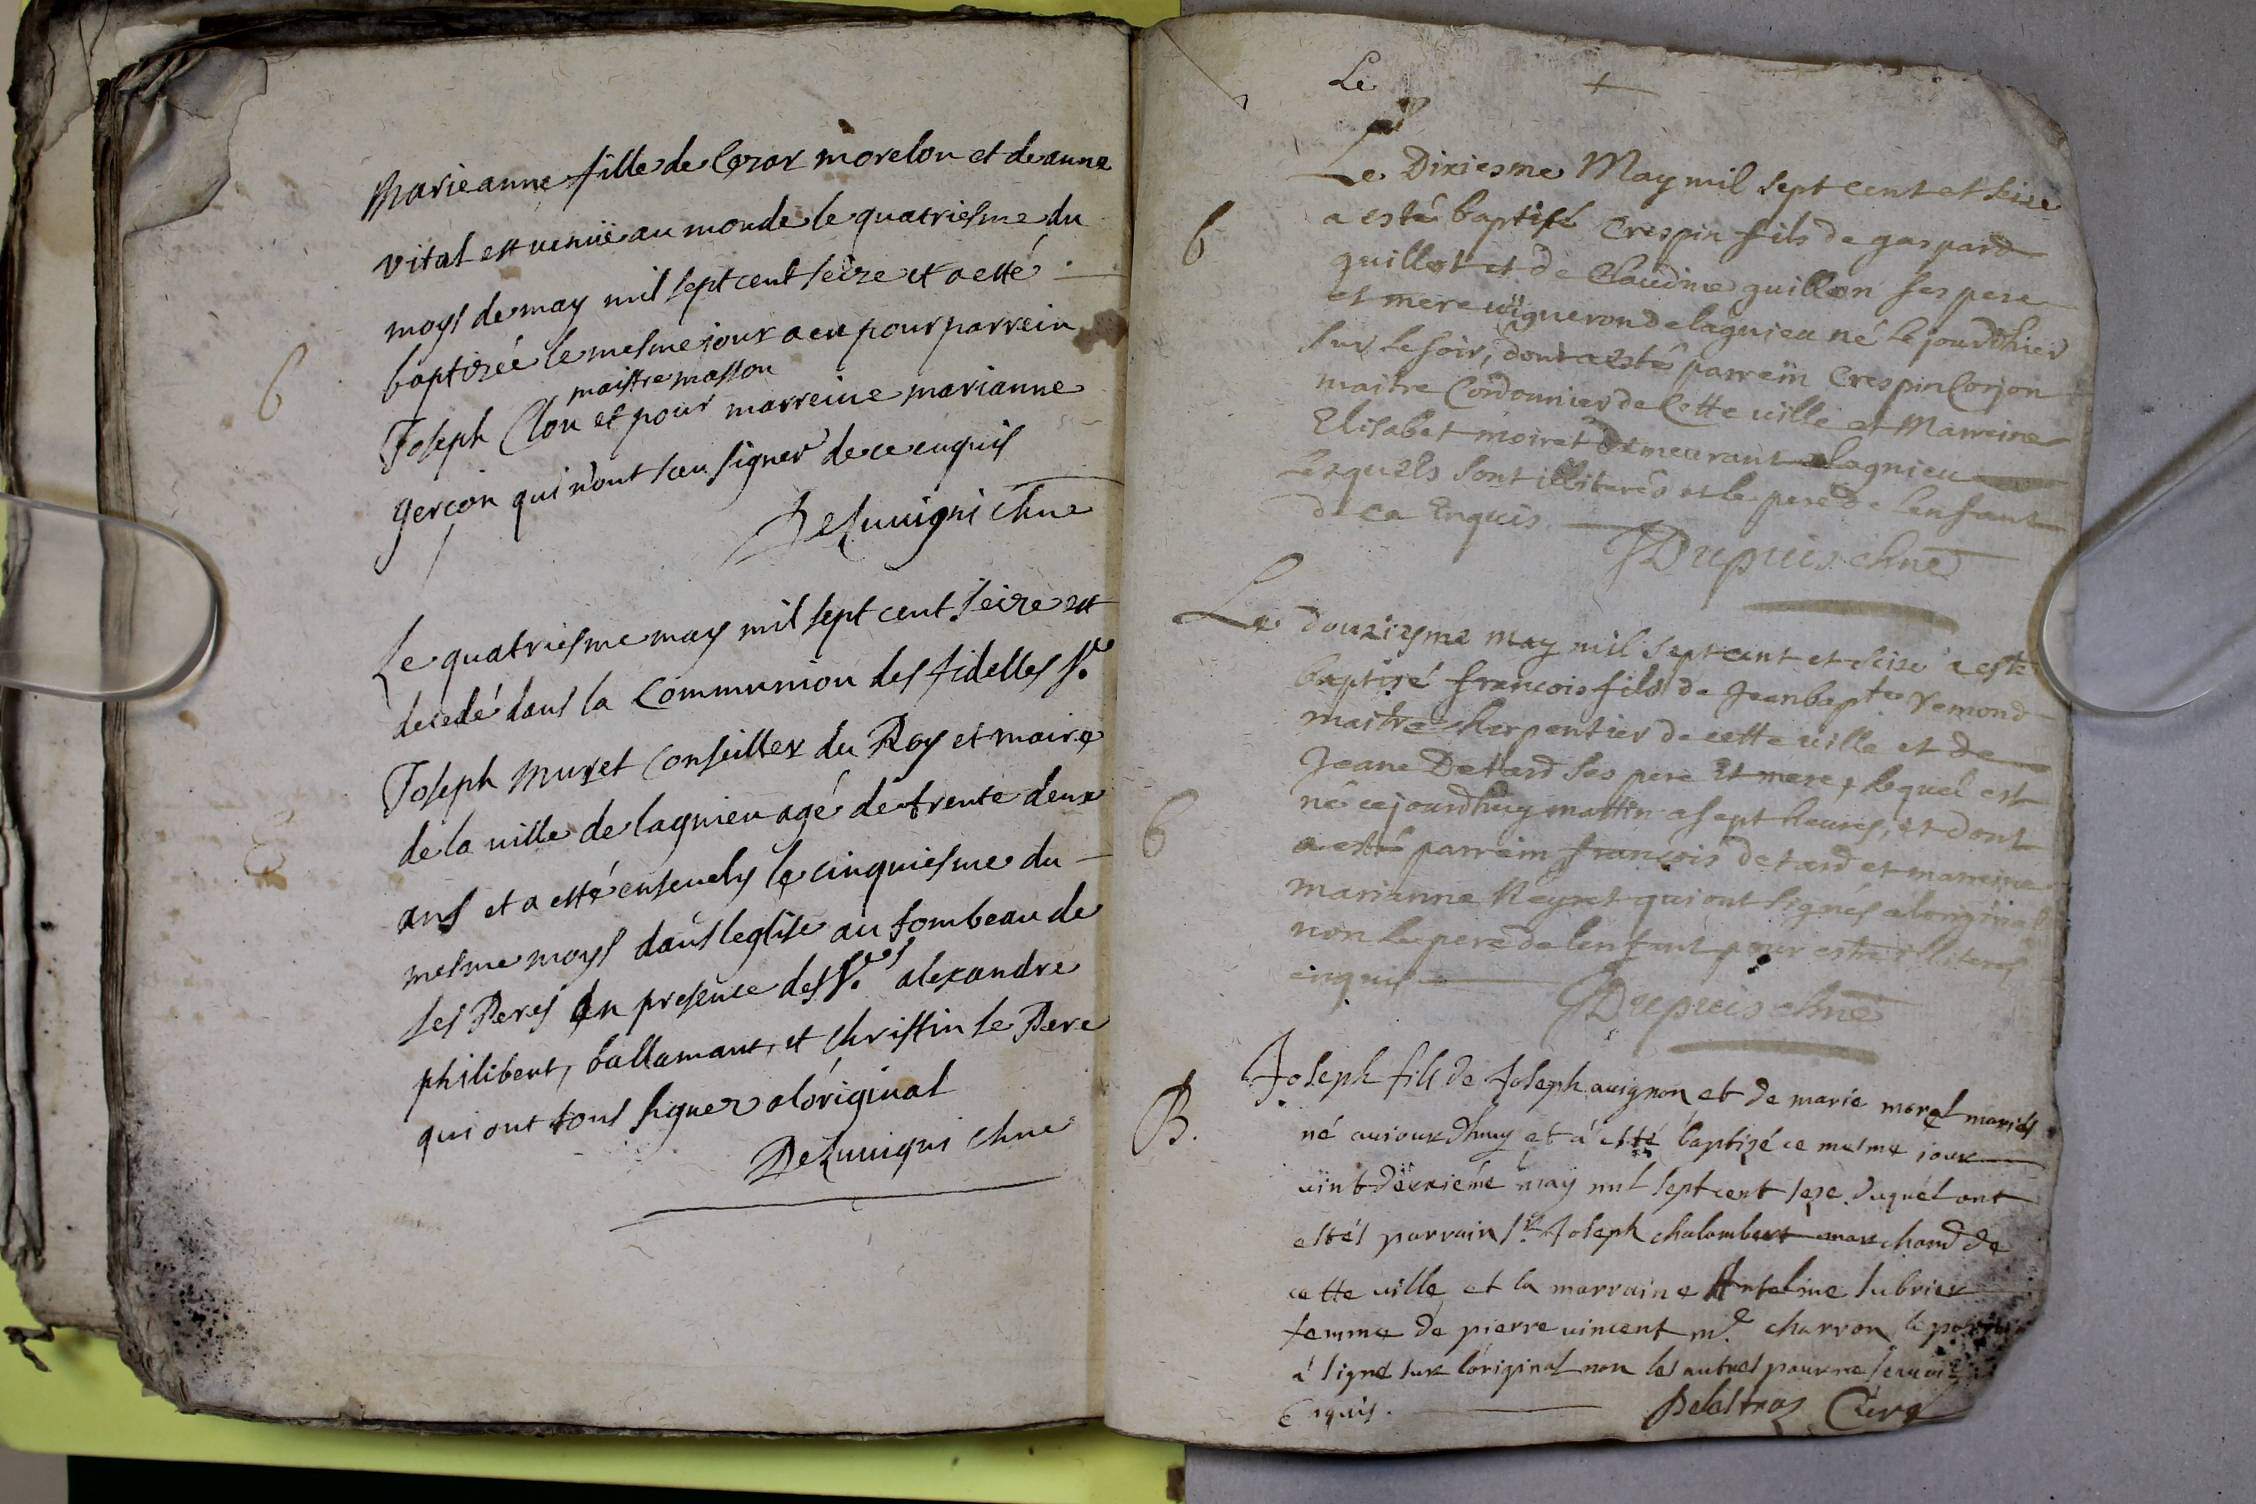 Marieanne fille de Cezar morelon et de anne
vital est venuë au monde le quatriesme du
moys de may mil sept cent seize et a esté
baptizée le mesme jour a eu pour parrein
maistre masson
Joseph Clon et pour marreine marianne
gercon qui n'ont sceu signer de ce enquis
Deluuigni chne
b
Le quatriesme may mil sept cent seize est
decedé dans la Communion des fidelles Sr.
Joseph Muret Conseiller du Roy et maire
de la ville de lagnieu agé de trente deux
ans et a esté enseuely le cinquiesme du
mesme moys dans leglise au tombeau de
ses Peres en presence des Srs. alexandre
philibert, ballamant, et Christin le Pere
qui ont tous signez a loriginal
Deluuigni chne
Le
Le Dixiesme May mil sept cent et seize
a esté baptisé Crespin fils de gaspard
guillot et de Claudine guillon ses pere
et mere uigneron de lagnieu né le jour d'hier
sur le soir, dont a esté parrein Crespin Corjon
maitre Cordonnier de Cette uille et Marreine
Elisabet moiret demeurant a lagnieu
Lesquels sont illiterés et le pere de lenfant
de ca Enquis
Dupuis chne
b
Le douziesme may mil sept cent et seize a esté
baptisé francois fils de Jean bapte. remond
maitre cherpentier de cette uille et de
Jeane Detard ses pere Et mere, lequel est
né cejourdhuy mattin a sept heures, et dont
a esté parrein françois detard et marreine
marianne Reynet qui ont signés a loriginal
non le pere de lenfant pour estre illiteres
enquis
Dupuis chne
b
Joseph fils de Joseph auignon et de marie morel mariés
né aujourdhuy et a esté baptizé ce mesme jour
uint deuxiéme may mil sept cent seze duquel ont
estés parrain Sr. Joseph chalombert marchand de
cette uille et la marraine Antelme lubrier
femme de pierre uincent me. charron le parrain
a signé sur l'original non les autres pour ne scauoir
Enquis.
B.
Curé